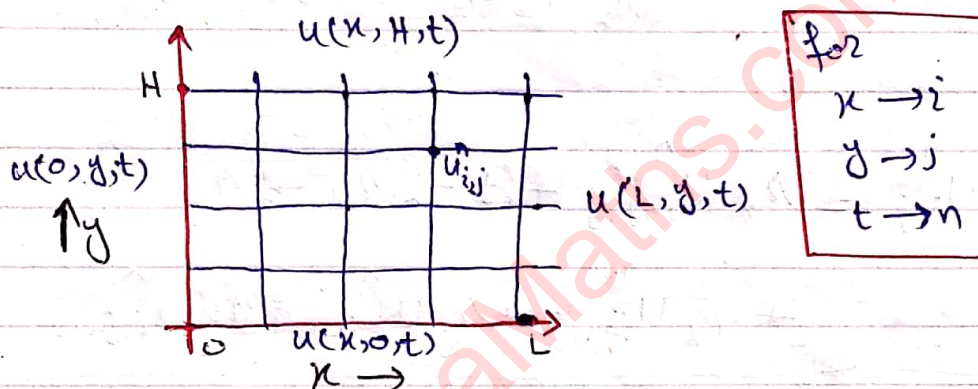 u(x,H,t)
H
u(0,y,t)
↑y
uⁿᵢ,ⱼ
u(L,y,t)
O
u(x,0,t)
L
x →
for
x → i
y → j
t → n
aMaths.co